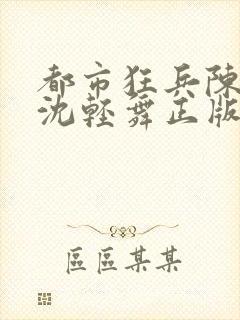 都市狂兵陳
沈輕舞正版
區區某某